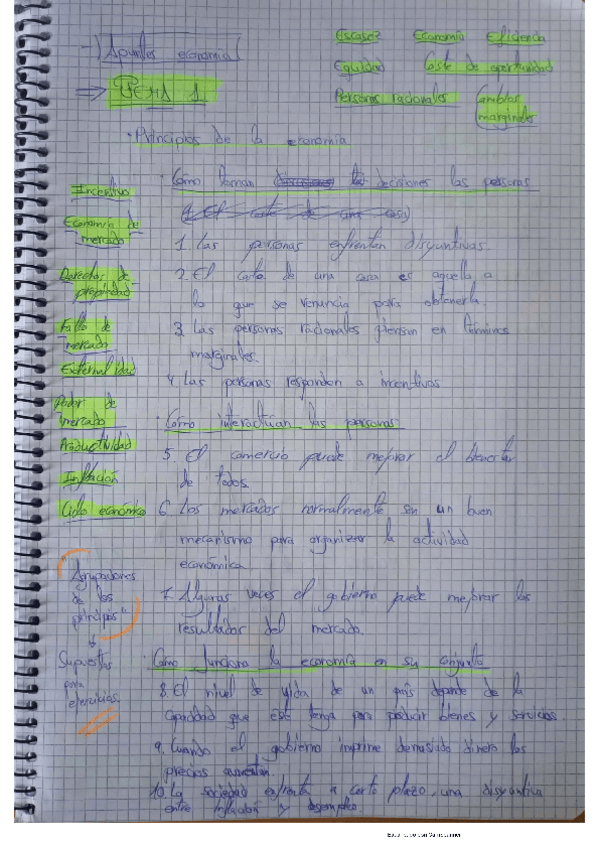 Escasez Economía Eficiencia
-) Apuntes economía
Equidad Coste de oportunidad
=> TEMA 1.
Personas racionales Cambios
marginales
· Principios de la economía
· Cómo toman decisiones las personas
Incentivo
(1. El coste de una cosa)
Economía de
mercado
1. Las personas enfrentan disyuntivas.
Derechos de
propiedad
2. El coste de una cosa es aquella a
lo que se renuncia para obtenerla.
Fallo de
mercado
3. Las personas racionales piensan en términos
marginales.
Externalidad
4. Las personas responden a incentivos
Poder de
mercado
· Cómo interactúan las personas
Productividad
5. El comercio puede mejorar el bienestar
de todos.
Inflación
Ciclo económico
6. Los mercados normalmente son un buen
mecanismo para organizar la actividad
económica.
"Agrupadores
de los
principios"
7. Algunas veces el gobierno puede mejorar los
resultados del mercado.
Supuestos
para
ejercicios.
· Cómo funciona la economía en su conjunto
8. El nivel de vida de un país depende de la
capacidad que este tenga para producir bienes y servicios.
9. Cuando el gobierno imprime demasiado dinero los
precios aumentan.
10. La sociedad enfrenta a corto plazo, una disyuntiva
entre inflación y desempleo.